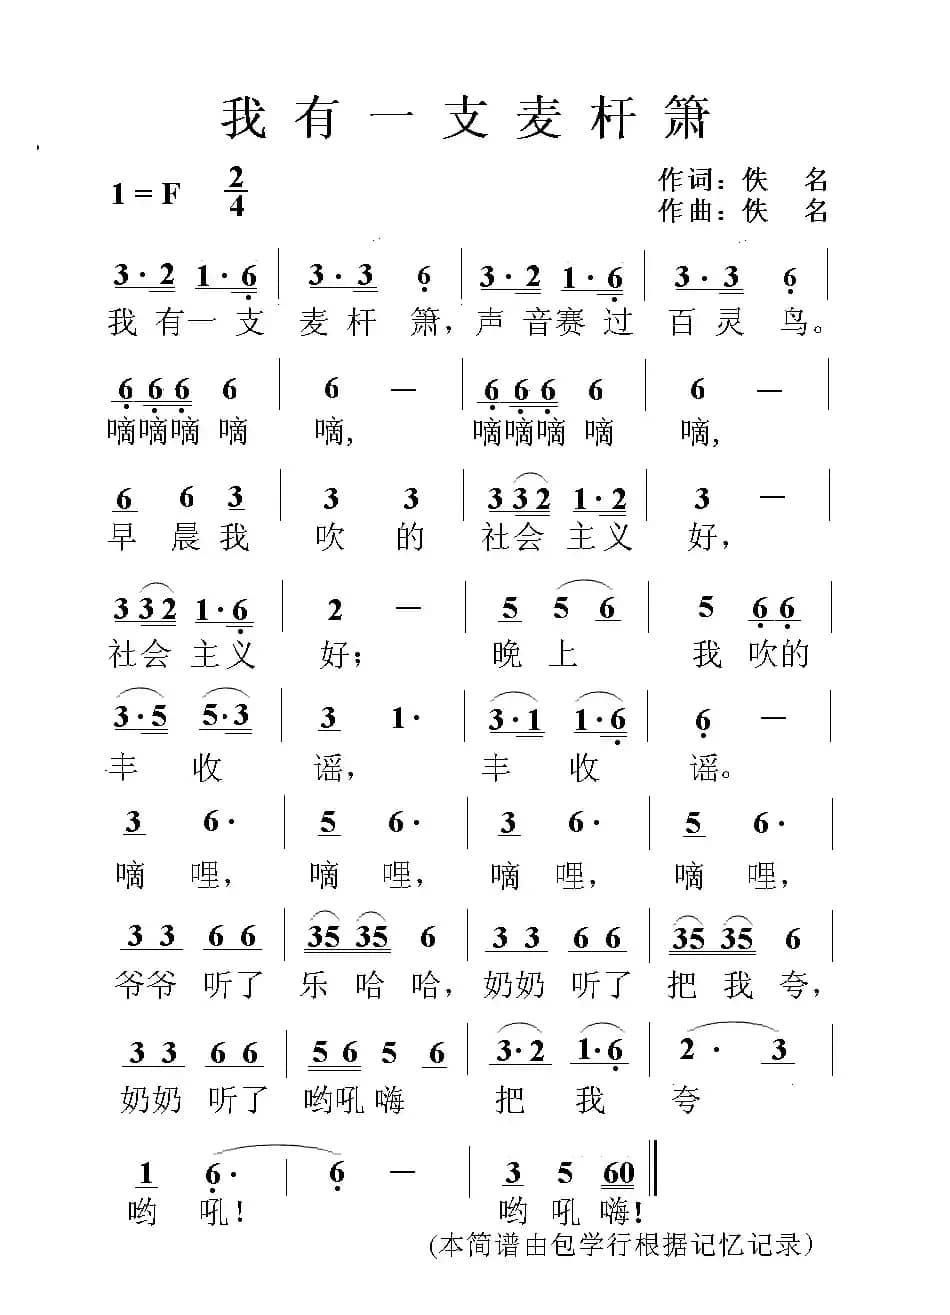 我有一支麦杆箫
1 = F 2/4
作词：佚 名
作曲：佚 名
3·2 1·6 | 3·3 6 | 3·2 1·6 | 3·3 6 |
我 有一 支 麦 杆 箫，声 音赛 过 百 灵 鸟。
6 6 6 6 | 6 — | 6 6 6 6 | 6 — |
嘀嘀嘀 嘀 嘀， 嘀嘀嘀 嘀 嘀，
6 6 3 | 3 3 | 332 1·2 | 3 — |
早 晨 我 吹 的 社会 主义 好，
332 1·6 | 2 — | 5 5 6 | 5 6 6 |
社会 主义 好； 晚 上 我 吹的
3·5 5·3 | 3 1· | 3·1 1·6 | 6 — |
丰 收 谣， 丰 收 谣。
3 6· | 5 6· | 3 6· | 5 6· |
嘀 哩， 嘀 哩， 嘀 哩， 嘀 哩，
3 3 6 6 | 35 35 6 | 3 3 6 6 | 35 35 6 |
爷爷 听了 乐 哈 哈，奶奶 听了 把 我 夸，
3 3 6 6 | 5 6 5 6 | 3·2 1·6 | 2 · 3 |
奶奶 听了 哟吼 嗨 把 我 夸
1 6· | 6 — | 3 5 60 ‖
哟 吼！ 哟 吼 嗨！
(本简谱由包学行根据记忆记录）